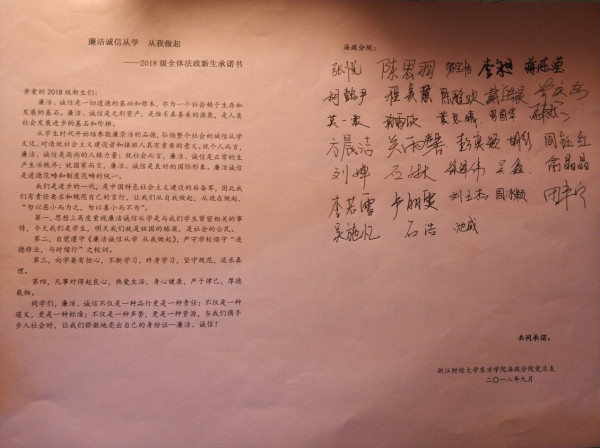 廉洁诚信从学 从我做起
——2018级全体法政新生承诺书
亲爱的2018级新生们：
廉洁、诚信是一切道德的基础和根本，亦为一个社会赖于生存和发
展的基石。廉洁、诚信是无形资产，是维系真善美的源泉，是人类
社会发展进步的基石和阶梯。
从学生时代开始培养敬廉崇洁的品德，弘扬整个社会的诚信从学
文化，对造就社会主义建设者和接班人具有重要的意义。就个人而言，
廉洁、诚信是高尚的人格力量；就社会而言，廉洁、诚信是正常的生
产生活秩序；就国家而言，廉洁、诚信是良好的国际形象。廉洁诚信
是道德范畴和制度范畴的统一。
我们是进步的一代，是中国特色社会主义建设的后备军，因此我
们有责任要求和规范自己的言行，让我们从自我做起，从现在做起，
“勿以恶小而为之，勿以善小而不为”。
第一，思想上高度重视廉洁诚信从学是与我们学生紧密相关的事
情，今天我们是学生，明天我们就是祖国的栋梁，是社会的公民。
第二，自觉遵守《廉洁诚信从学 从我做起》，严守学校恪守“进
德修业，与时偕行”之校训。
第三，向学要有恒心，不断学习，终身学习，坚守规范，追求真
理。
第四，凡事对得起良心，热爱生活，身心健康，严于律己，厚德
载物。
同学们，廉洁、诚信不仅是一种品行更是一种责任；不仅是一种
道义，更是一种标准；不仅是一种声誉，更是一种资源。当我们携手
步入社会时，让我们骄傲地亮出自己的身份证—廉洁、诚信！
法政分院：
张悦 陈思羽 李昶
方晨洁 吴雨馨 周钰红
刘婷 石林 吴鑫 俞晶晶
李若雪 卢朝雯 刘士杰
吴施忆 石浩 沈成
共同承诺。
浙江财经大学东方学院法政分院党总支
二〇一八年九月